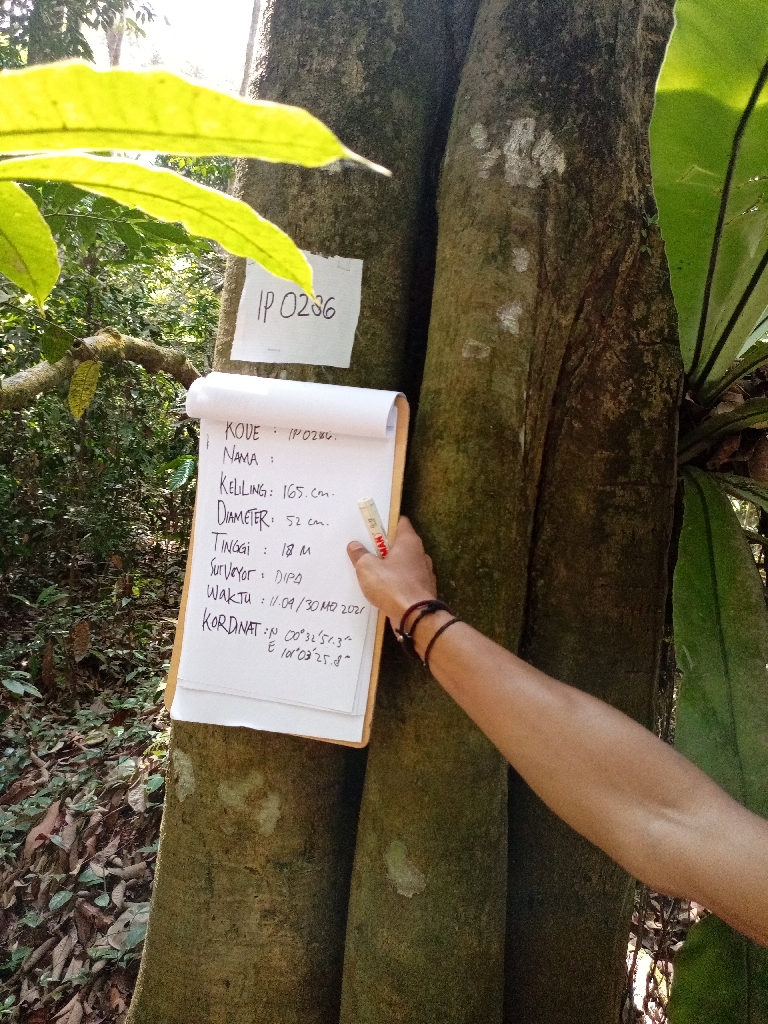 IP 0286
KODE : IP 0286.
NAMA :
KELILING : 165. cm.
DIAMETER : 52 cm.
TINGGI : 18 M
Surveyor : DIPA
WAKTU : 11.09 / 30 MO 2021
KORDINAT : N 00° 32' 51.3"
E 101° 03' 25.8"